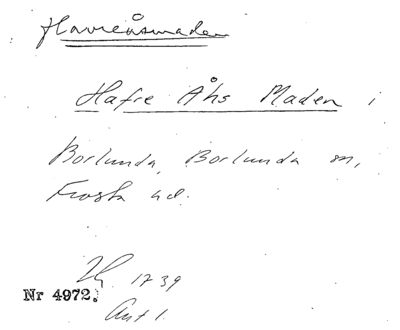 Havreåsmaden
Hafre Åhs Maden i
Borlunda, Borlunda sn,
Frosta hd.
1739
Nr 4972.
Akt 1.